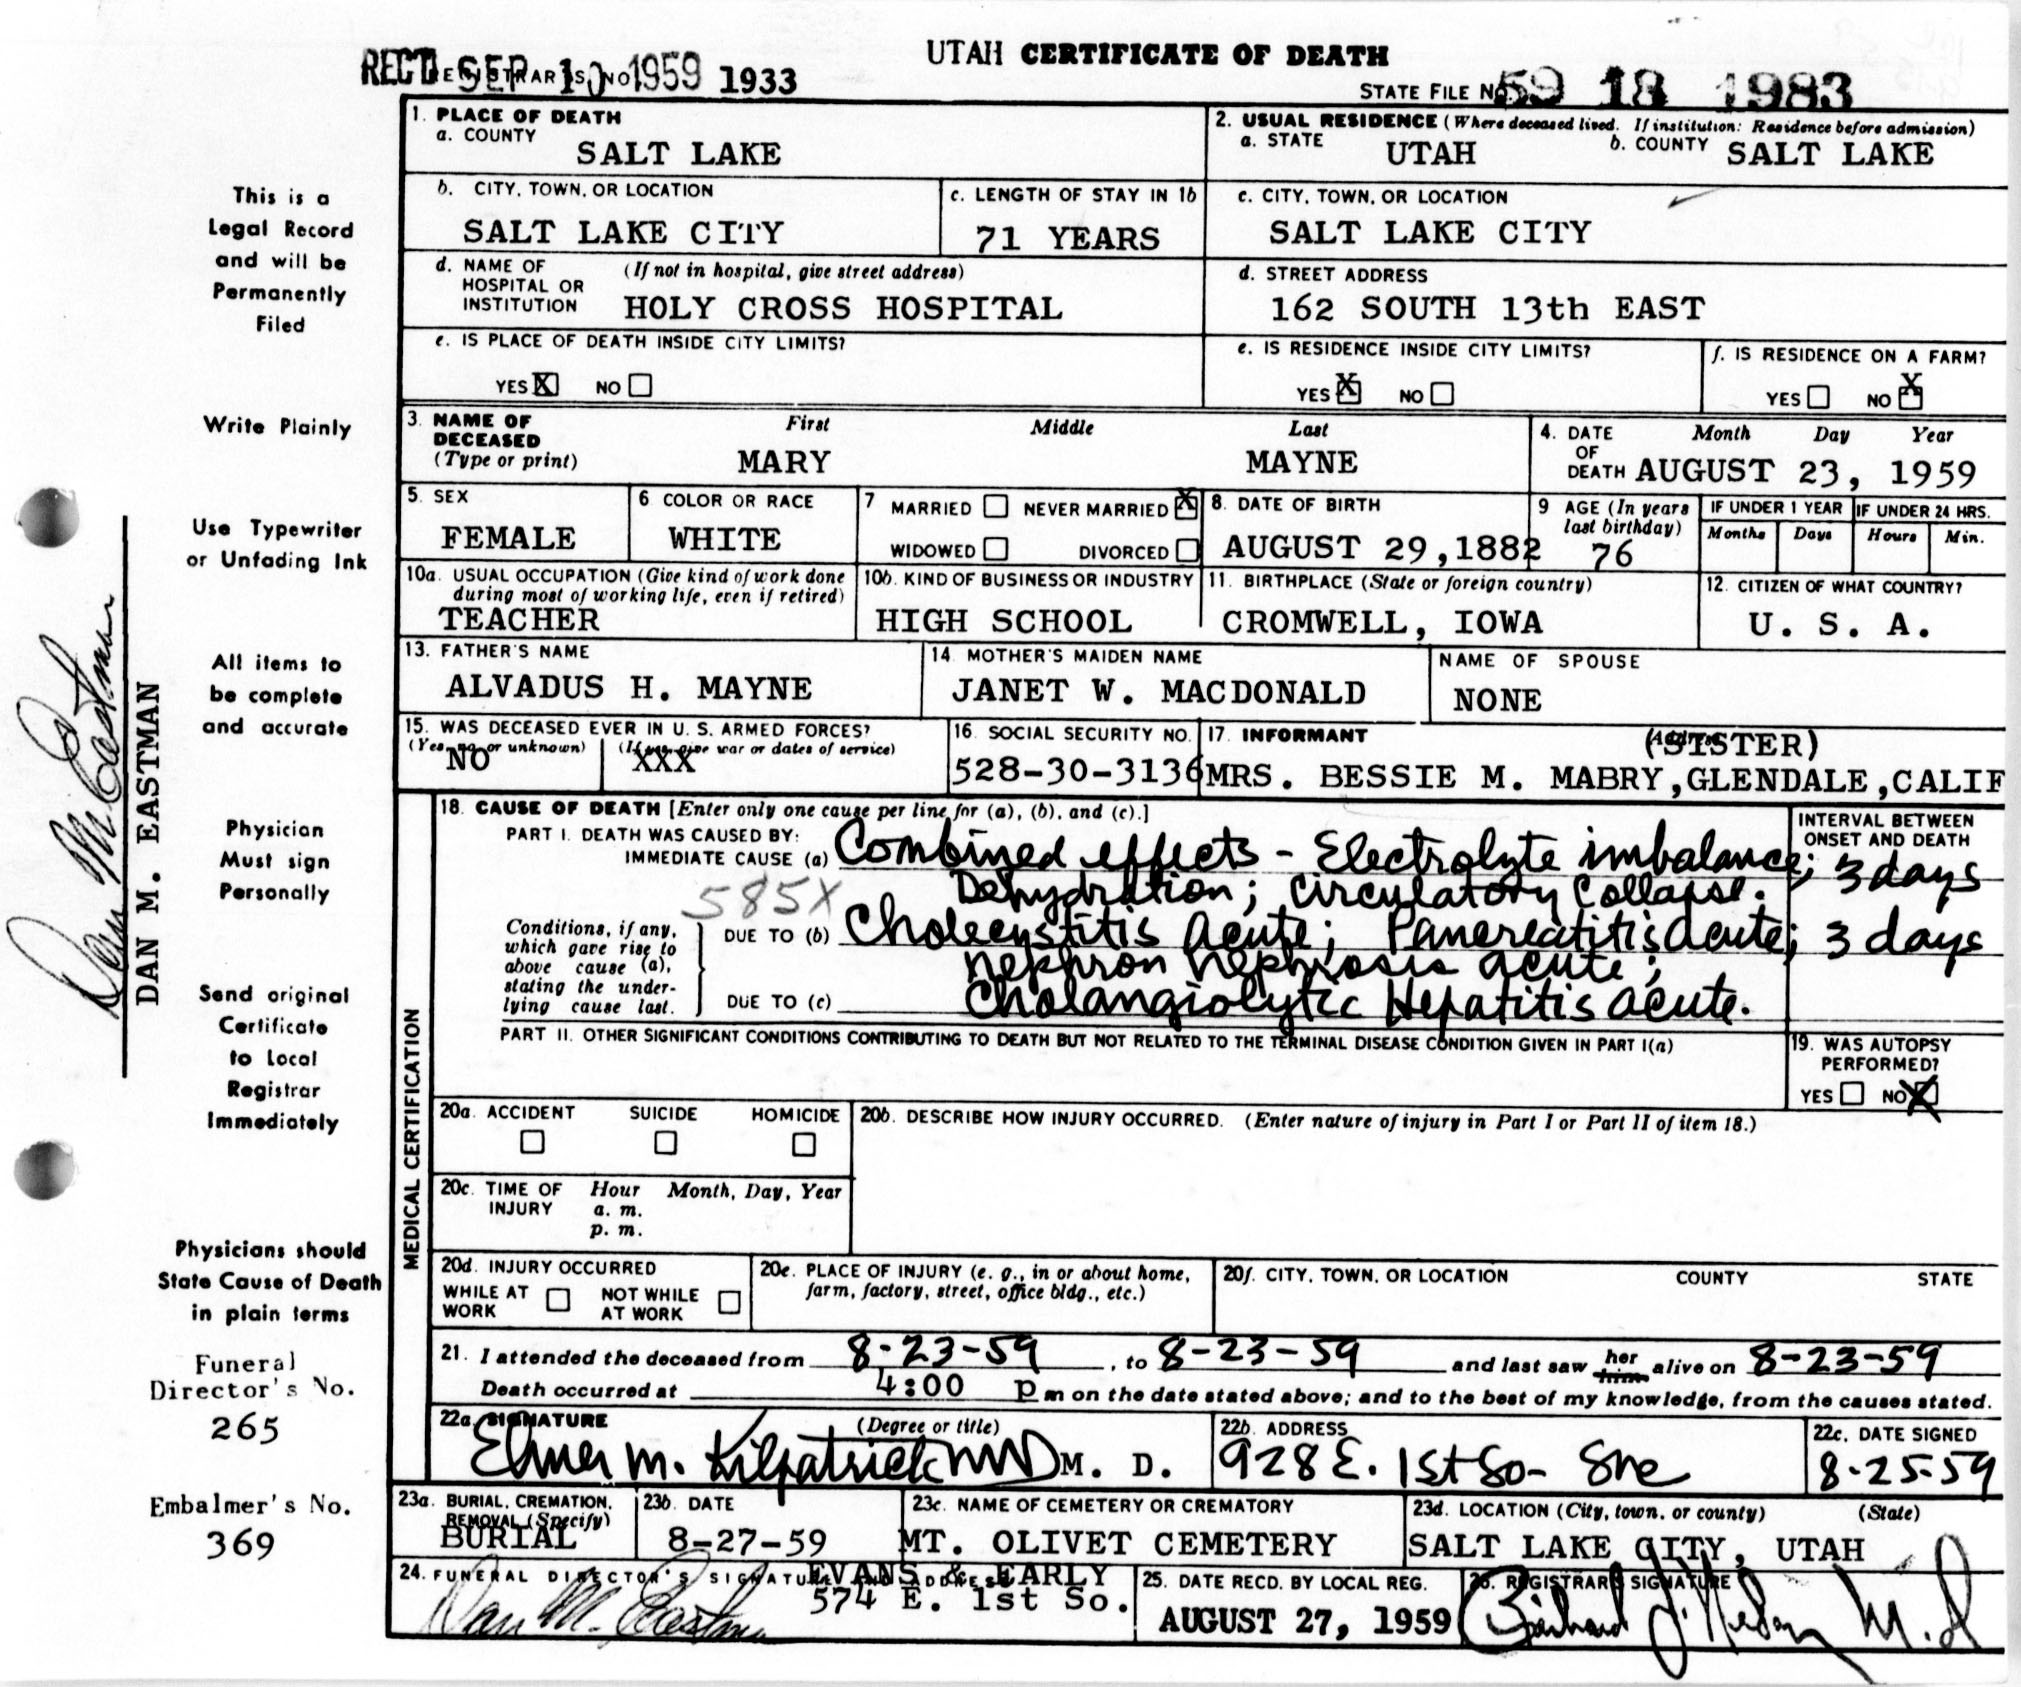 UTAH CERTIFICATE OF DEATH
REC'D SEP 10 1959 1933
STATE FILE No. 59 18 1983
1. PLACE OF DEATH
a. COUNTY
SALT LAKE
2. USUAL RESIDENCE (Where deceased lived. If institution: Residence before admission)
a. STATE UTAH b. COUNTY SALT LAKE
b. CITY, TOWN, OR LOCATION
SALT LAKE CITY
c. LENGTH OF STAY IN 1b
71 YEARS
c. CITY, TOWN, OR LOCATION
SALT LAKE CITY
d. NAME OF HOSPITAL OR INSTITUTION (If not in hospital, give street address)
HOLY CROSS HOSPITAL
d. STREET ADDRESS
162 SOUTH 13th EAST
e. IS PLACE OF DEATH INSIDE CITY LIMITS?
YES X NO
e. IS RESIDENCE INSIDE CITY LIMITS?
YES X NO
f. IS RESIDENCE ON A FARM?
YES NO X
3. NAME OF DECEASED (Type or print)
First Middle Last
MARY MAYNE
4. DATE OF DEATH Month Day Year
AUGUST 23, 1959
5. SEX
FEMALE
6. COLOR OR RACE
WHITE
7 MARRIED NEVER MARRIED X
WIDOWED DIVORCED
8. DATE OF BIRTH
AUGUST 29,1882
9 AGE (In years last birthday)
76
IF UNDER 1 YEAR
Months Days
IF UNDER 24 HRS.
Hours Min.
10a. USUAL OCCUPATION (Give kind of work done during most of working life, even if retired)
TEACHER
10b. KIND OF BUSINESS OR INDUSTRY
HIGH SCHOOL
11. BIRTHPLACE (State or foreign country)
CROMWELL, IOWA
12. CITIZEN OF WHAT COUNTRY?
U. S. A.
13. FATHER'S NAME
ALVADUS H. MAYNE
14. MOTHER'S MAIDEN NAME
JANET W. MACDONALD
NAME OF SPOUSE
NONE
15. WAS DECEASED EVER IN U. S. ARMED FORCES?
(Yes, no, or unknown) (If yes, give war or dates of service)
NO XXX
16. SOCIAL SECURITY NO.
528-30-3136
17. INFORMANT Address
(SISTER)
MRS. BESSIE M. MABRY,GLENDALE,CALIF
MEDICAL CERTIFICATION
18. CAUSE OF DEATH [Enter only one cause per line for (a), (b), and (c).]
PART I. DEATH WAS CAUSED BY:
IMMEDIATE CAUSE (a) Combined effects - Electrolyte imbalance;
Dehydration; Circulatory Collapse.
585X
Conditions, if any, which gave rise to above cause (a), stating the underlying cause last.
DUE TO (b) Cholecystitis Acute; Pancreatitis acute;
nephron nephrosis acute;
DUE TO (c) Cholangiolytic Hepatitis acute.
INTERVAL BETWEEN ONSET AND DEATH
3 days
3 days
PART II. OTHER SIGNIFICANT CONDITIONS CONTRIBUTING TO DEATH BUT NOT RELATED TO THE TERMINAL DISEASE CONDITION GIVEN IN PART I(a)
19. WAS AUTOPSY PERFORMED?
YES NO X
20a. ACCIDENT SUICIDE HOMICIDE
20b. DESCRIBE HOW INJURY OCCURRED. (Enter nature of injury in Part I or Part II of item 18.)
20c. TIME OF INJURY Hour Month, Day, Year
a. m.
p. m.
20d. INJURY OCCURRED
WHILE AT WORK NOT WHILE AT WORK
20e. PLACE OF INJURY (e. g., in or about home, farm, factory, street, office bldg., etc.)
20f. CITY, TOWN, OR LOCATION COUNTY STATE
21. I attended the deceased from 8-23-59, to 8-23-59 and last saw her him alive on 8-23-59
Death occurred at 4:00 p m on the date stated above; and to the best of my knowledge, from the causes stated.
22a. SIGNATURE (Degree or title)
Elmer M. Kilpatrick MD M. D.
22b. ADDRESS
928 E. 1st So-
22c. DATE SIGNED
8-25-59
23a. BURIAL, CREMATION, REMOVAL (Specify)
BURIAL
23b. DATE
8-27-59
23c. NAME OF CEMETERY OR CREMATORY
MT. OLIVET CEMETERY
23d. LOCATION (City, town, or county) (State)
SALT LAKE CITY, UTAH
24. FUNERAL DIRECTOR'S SIGNATURE AND ADDRESS
EVANS & EARLY
574 E. 1st So.
Dan M. Eastman
25. DATE RECD. BY LOCAL REG.
AUGUST 27, 1959
26. REGISTRAR'S SIGNATURE
M.D
This is a
Legal Record
and will be
Permanently
Filed
Write Plainly
Use Typewriter
or Unfading Ink
All items to
be complete
and accurate
Physician
Must sign
Personally
Send original
Certificate
to Local
Registrar
Immediately
Physicians should
State Cause of Death
in plain terms
Funeral
Director's No.
265
Embalmer's No.
369
Dan M Eastman
DAN M. EASTMAN